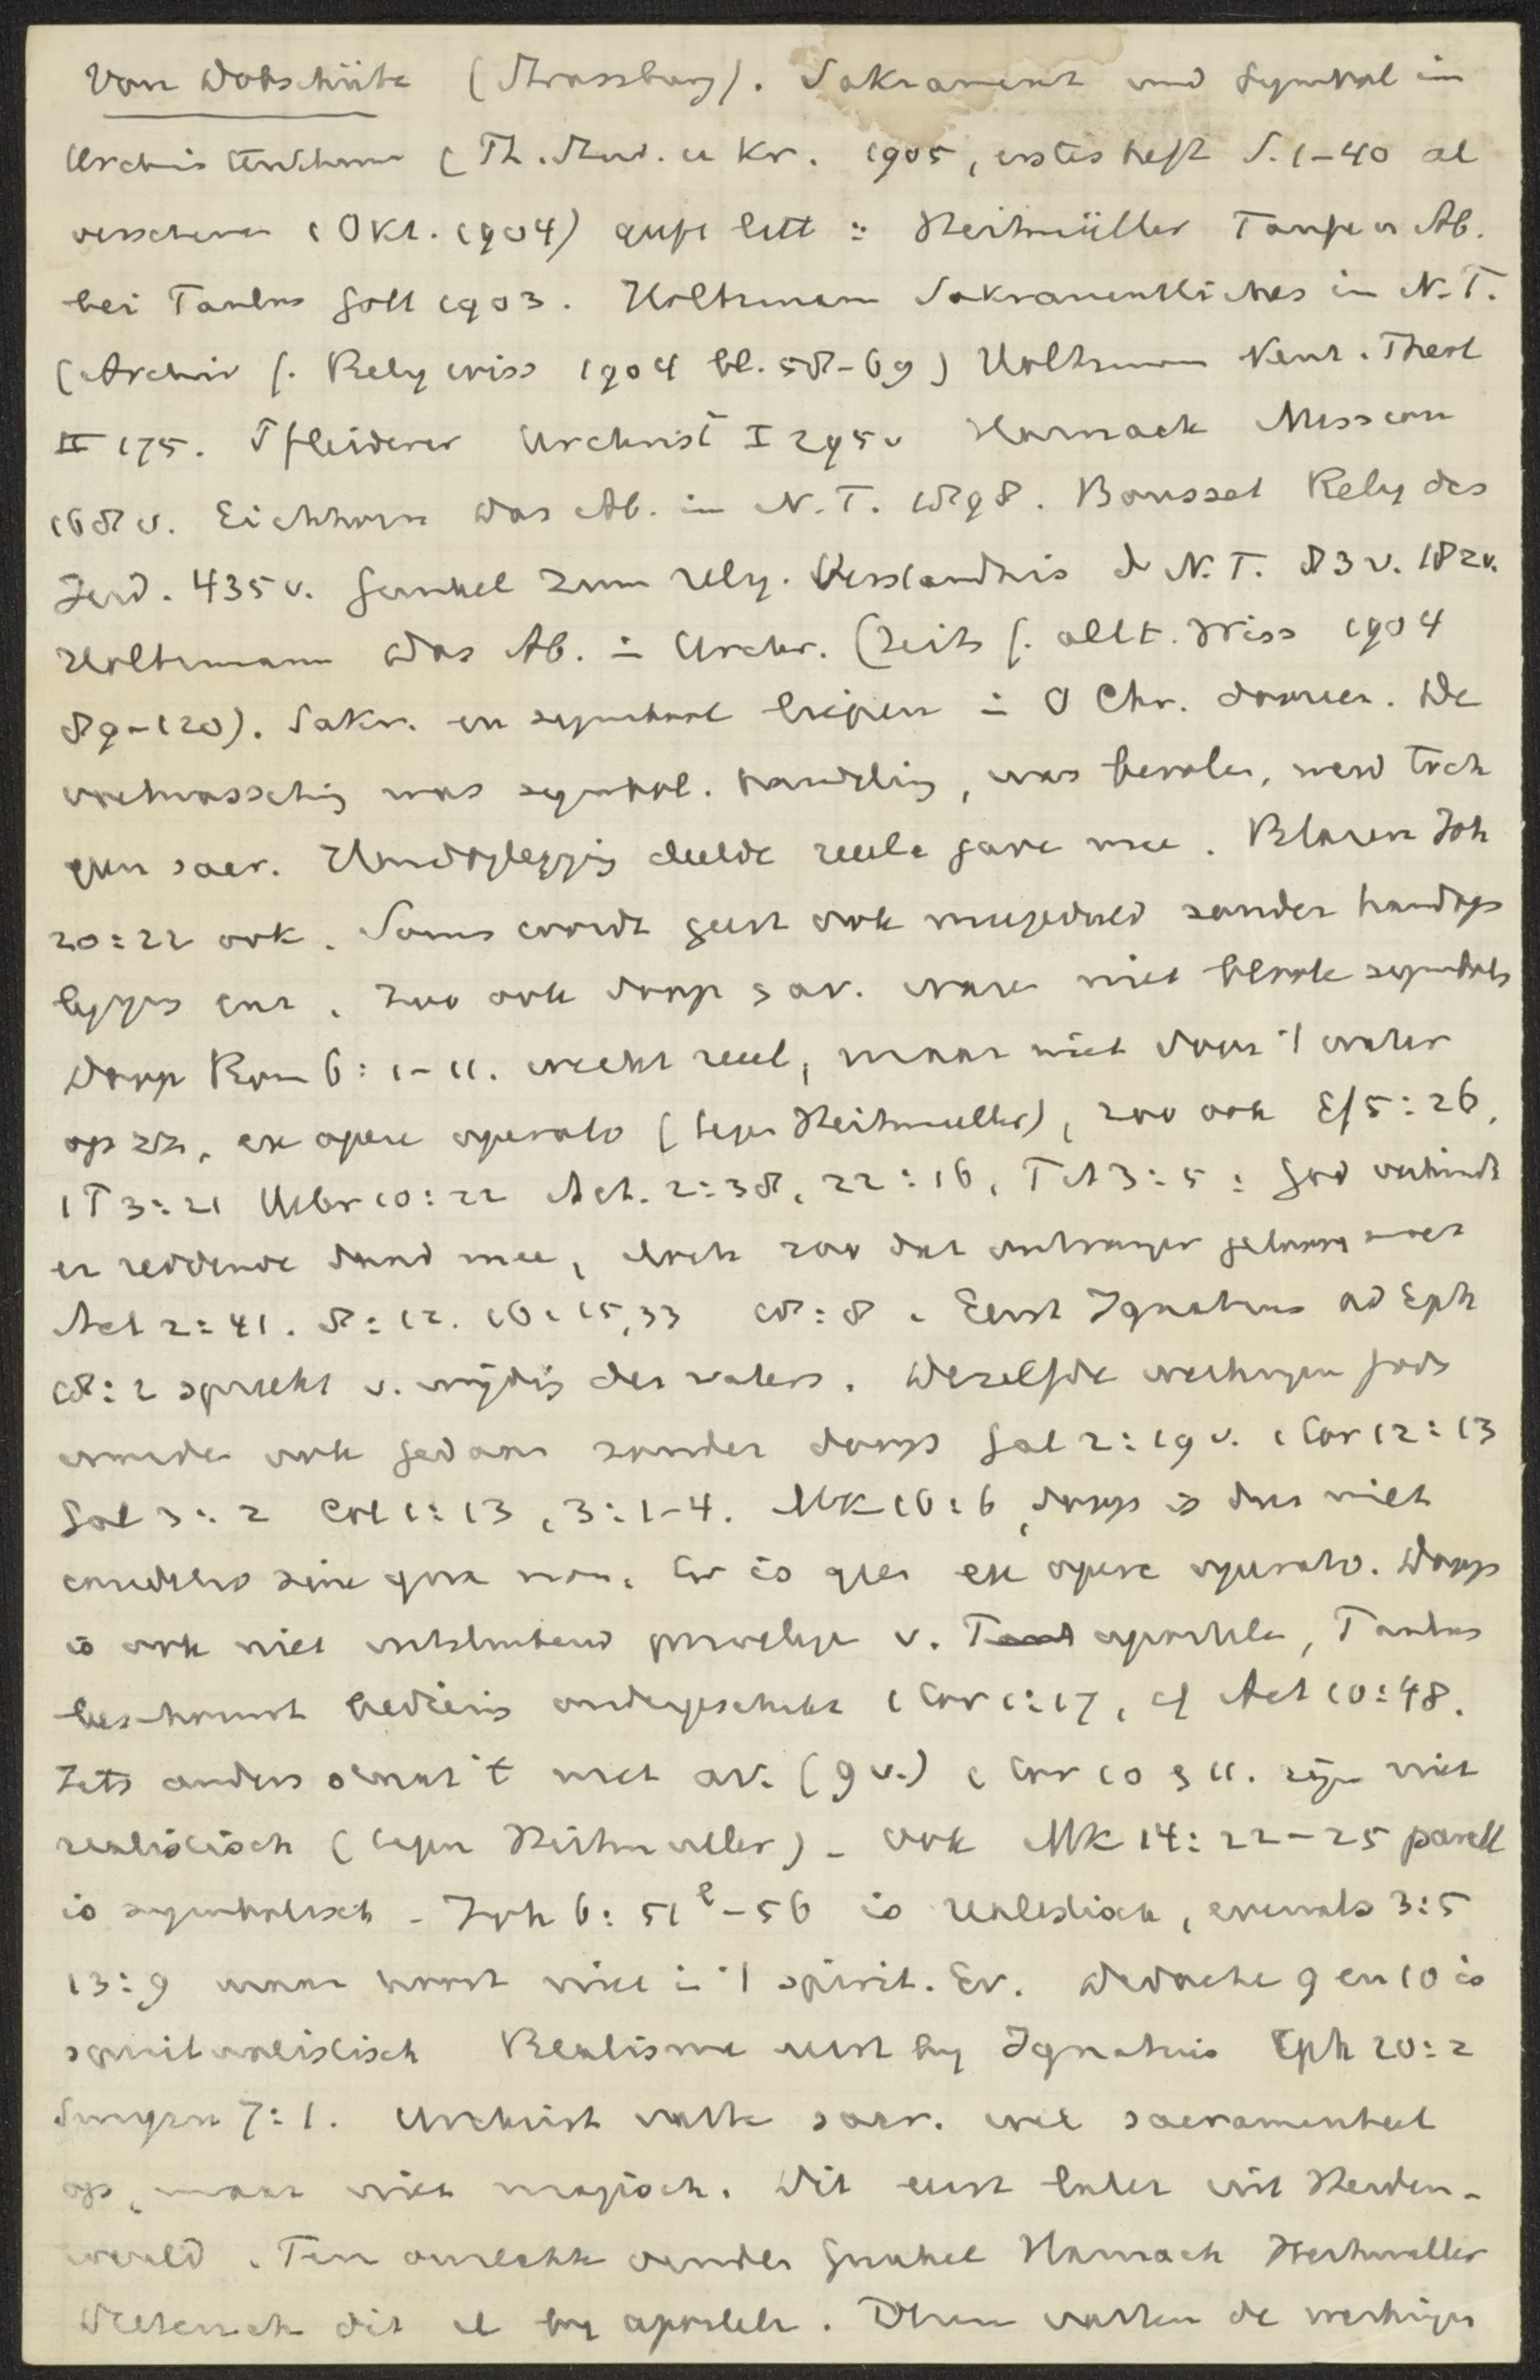 Von Dobschütz (Strassburg). Sakrament und Symbol im
Urchristentum (Th. Stud. u Kr. 1905, erstes heft S. 1-40 al
verschenen (Okt. 1904) geeft litt : Heitmüller Taufe u Ab.
bei Paulus Gött 1903. Holtzmann Sakramentliches im N.T.
(Archiv f. Relig wiss 1904 bl. 58-69) Holtzmann Neut. Theol
II 175. Pfleiderer Urchrist I 295v Harnack Mission
168 v. Eichhorn Das Ab. im N.T. 1898. Bousset Relig des
Jud. 435 v. Gunkel Zum relig. Verständnis d N.T. 83 v. 182 v.
Holtzmann Das Ab. im Urchr. (Zeits f. altt. Wiss 1904
89-120). Sakr. en symbool liepen in O Chr. dooreen. De
voetwassching was symbol. handeling, was bevolen, werd toch
geen sacr. Handoplegging deelde reele gave mee. Blazen Joh
20:22 ook. Soms wordt geest ook meegedeeld zonder handop
legging enz. Zoo ook doop & av. waren niet bloote symbols
Doop Rom 6: 1-11. werkt reeel, maar niet door 't water
op zich, ex opere operato (tegen Heitmuller), zoo ook Ef 5:26,
1 P 3:21 Hebr 10:22 Act. 2:38, 22:16, Tit 3:5 : God verbindt
er reddende daad mee, doch zoo dat ontvanger gelooven moet
Act 2:41. 8:12. 16:15,33 18:8. Eerst Ignatius ad Eph
18:2 spreekt v. wijding des waters. Dezelfde werkingen Gods
worden ook gedaan zonder doop Gal 2:19 v. 1 Cor 12:13
Gal 3:2 Col 1:13, 3:1-4. Mk 16:16, doop is dus niet
conditio sine qua non. Er is geen ex opere operato. Doop
is ook niet uitsluitend privilege v. apostelen, Paulus
beschouwt bediening ondergeschikt 1 Cor 1:17, cf Act 10:48.
Iets anders staat 't met av. (9 v.) 1 Cor 10 & 11. zijn niet
realistisch (tegen Heitmuller) - ook Mk 14: 22-25 parall
is symbolisch - Joh 6: 51b-56 is realistisch, evenals 3:5
13:9 maar hoort niet in 't spirit. Ev. Didache 9 en 10 is
spiritualistisch Realisme eerst by Ignatius Eph 20:2
Smyrn 7:1. Urchrist vatte sacr. wel sacramenteel
op, maar niet magisch. Dit eerst later uit Heiden-
wereld. Ten onrechte vinden Gunkel Harnack Heitmuller
Dieterich dit al by apostelen. Dezen vatten de werkingen